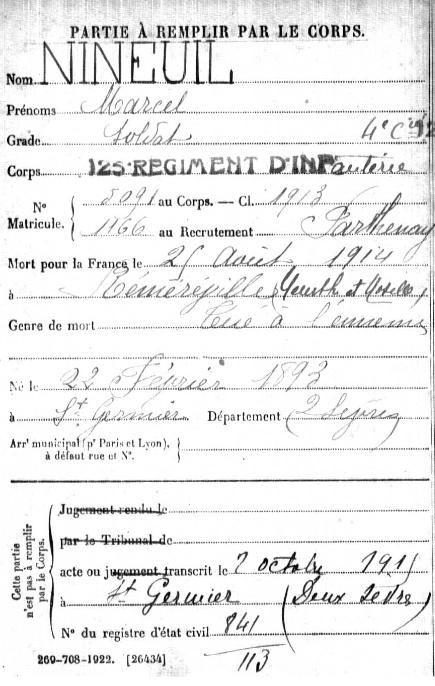 PARTIE À REMPLIR PAR LE CORPS.
Nom NINEUIL
Prénoms Marcel
Grade Soldat 4e Cie
Corps 125e REGIMENT D'INFanterie
N° Matricule. { 5091 au Corps. — Cl. 1913
1966 au Recrutement Parthenay
Mort pour la France le 25 Août 1914
à Réméréville (Meurth et Moselle)
Genre de mort Tué à l'ennemi
Né le 22 Février 1893
à St Germier Département (2 Sèvres)
Arrt municipal (pr Paris et Lyon), à défaut rue et N°. }
Cette partie n'est pas à remplir par le Corps.
Jugement rendu le
par le Tribunal de
acte ou jugement transcrit le 7 octobre 1915
à St Germier (Deux Sèvres)
N° du registre d'état civil 841
113
269-708-1922. [26434]